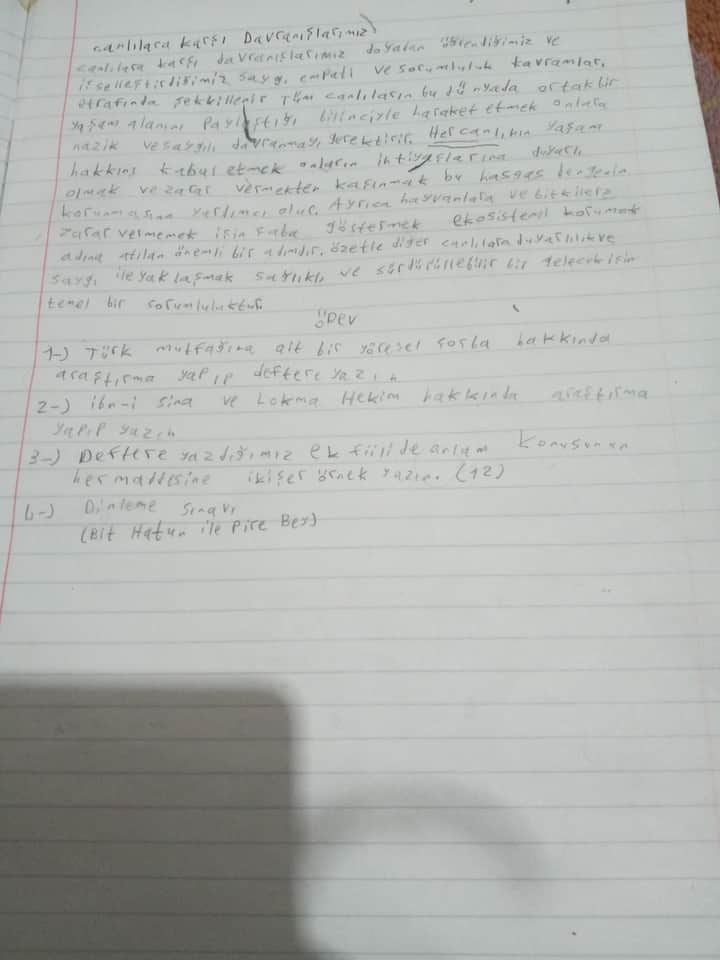 canlılara karşı Davranışlarımız
canlılara karşı davranışlarımız doğadan öğrendiğimiz ve
içselleştirdiğimiz saygı, empati ve sorumluluk kavramları
etrafında şekillenir Tüm canlıların bu dünyada ortak bir
yaşam alanını paylaştığı bilinciyle haraket etmek onlara
nazik ve saygılı davranmayı gerektirir. Her canlının yaşam
hakkını kabul etmek onların ihtiyaçlarına duyarlı
olmak ve zarar vermekten kaçınmak bu hasgas dengenin
korunmasına yardımcı olur. Ayrıca hayvanlara ve bitkilere
zarar vermemek için çaba göstermek ekosistemi korumak
adına atılan önemli bir adımdır. özetle diğer canlılara duyarlılık ve
saygı ile yaklaşmak sağlıklı ve sürdürüllebilir bir gelecek için
temel bir sorumluluktur.
ÖDEV
1-) Türk mutfağına ait bir yöresel çorba hakkında
araştırma yapıp deftere yazın
2-) ibn-i Sina ve Lokma Hekim hakkında araştırma
yapıp yazın
3-) Deftere yazdığımız ek fiilide anlam konusunun
her maddesine ikişer örnek yazın. (12)
4-) Dinleme Sınavı
(Bit Hatun ile Pire Bey)